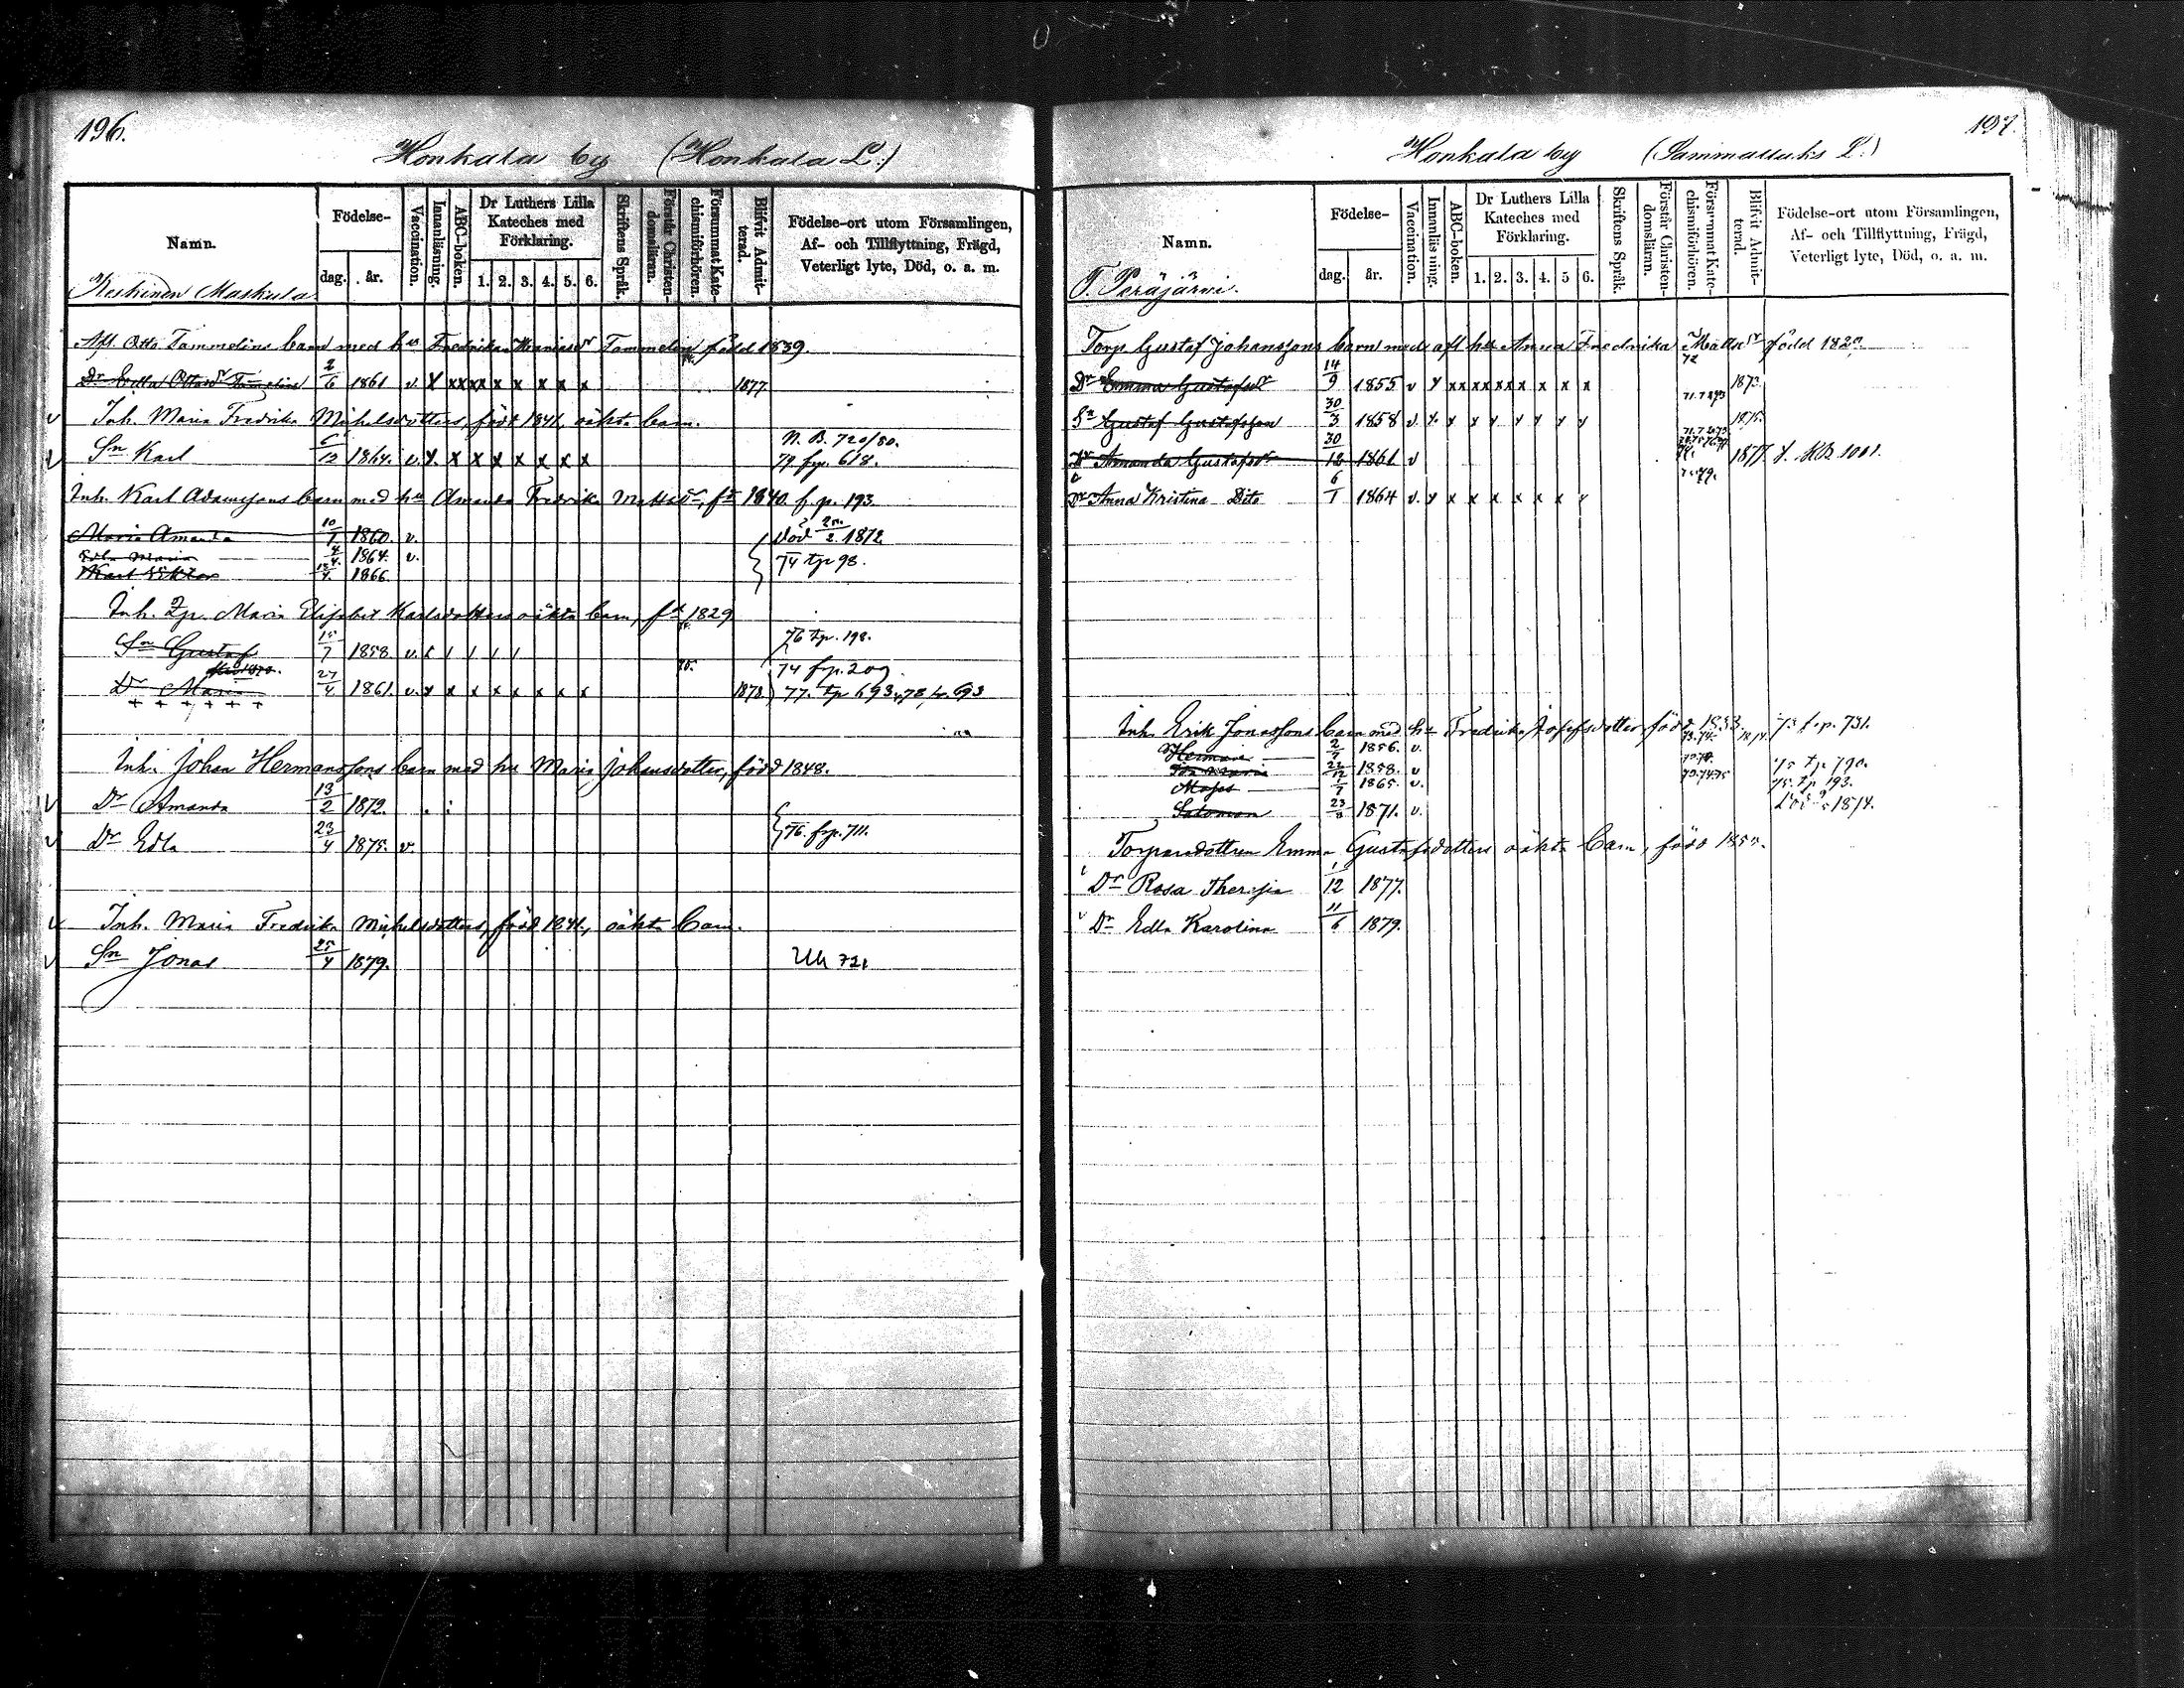 196.
Honkala by (Honkala L:)
Namn.
Födelse-
dag. år.
Vaccination.
Innanläsning.
ABC-boken.
Dr Luthers Lilla Kateches med Förklaring.
1. 2. 3. 4. 5. 6.
Skriftens Språk.
Förstår Christen-domsläran.
Försummat Kate-chismiförhören.
Blifvit Admit-terad.
Födelse-ort utom Församlingen,
Af- och Tillflyttning, Frägd,
Veterligt lyte, Död, o. a. m.
Keskinen Maskula
Afl. Otto Tammelins barn med hu Fredrika Tammelin född 1839.
Dr Edla Ottosdr Tamelin 2/6 1861 v. x xx xx x x x x x 1877
Inh. Maria Fredrika Mihelsdotters, född 1841, oäkta barn.
N. B. 720/80.
Sn Karl 6/12 1864. v. x. x x x x x x x 79 frp. 618.
Inh. Karl Adamssons barn med hu Amanda Fredrika Mattsdr, fd 1840. f. p. 193.
Maria Amanda 10/1 1860. v. död 2/2 1872
Edla Maria 4/4 1864. v. 74 tp 98.
Karl Viktor 1866
Inh. Maria Elisabet Karlsdotters oäkta barn, fd 1829
Sn Gustaf 15/7 1858. v. 76 tp. 198.
74 frp. 209.
Dr Maria 27/4 1861. v. x x x x x x x x 1878 77. tp 693, 78 fr. 693
+ + + + + +
Inh. Johan Hermanssons barn med hu Maria Johansdotter, född 1848.
Dr Amanda 13/2 1872.
76. frp. 711.
Dr Edla 23/4 1875. v.
Inh. Maria Fredrika Mihelsdotters, född 1841, oäkta barn.
Sn Jonas 25/4 1879. Uh 721
197.
Honkala by (Sammattuks L:)
Namn.
Födelse-
dag. år.
Vaccination.
Innanläsning.
ABC-boken.
Dr Luthers Lilla Kateches med Förklaring.
1. 2. 3. 4. 5 6.
Skriftens Språk.
Förstår Christen-domsläran.
Försummat Kate-chismiförhören.
Blifvit Admit-terad.
Födelse-ort utom Församlingen,
Af- och Tillflyttning, Frägd,
Veterligt lyte, Död, o. a. m.
T. Peräjärvi.
Torp. Gustaf Johanssons barn med afl hu Anna Fredrika Mattsdr född 1820
72
Dr Emma Gustafsdr 14/9 1855 v x xx xx x x x x x 1873.
Sn Gustaf Gustafsson 30/3 1858 v. x. x x y y y y y 1875.
Dr Amanda Gustafsdr 30/12 1861 v 1877 f. KB 1001.
Dr Anna Kristina Dito 6/1 1864 v. x x x x x x x y
Inh. Erik Jonassons barn med hu Fredrika Josefsdotter, född 1833 73 f. p. 731.
Herman 1856. v.
1858. v 75 tp 790.
Moses 1865. v. 75. tp 193.
Salomon 23/8 1871. v. 1874.
Torparedottren Emma Gustafsdotters oäkta barn, född 1855.
Dr Rosa Theresia 1/12 1877.
Dr Edla Karolina 11/6 1879.